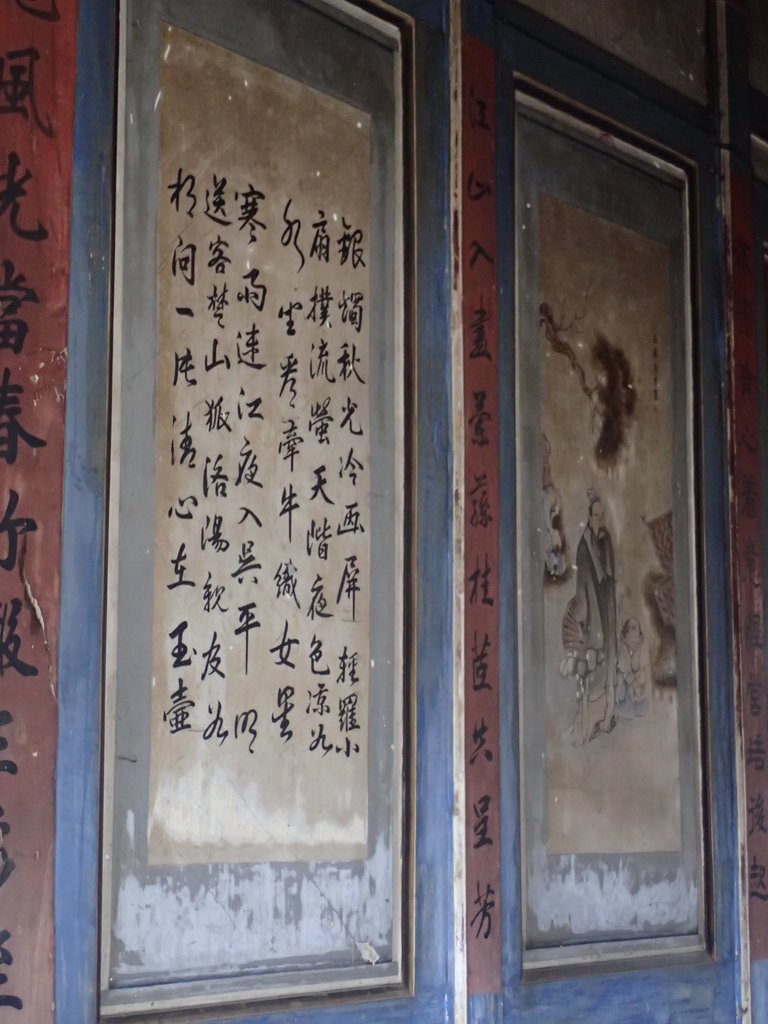 江山入畫蘭蓀桂茝共呈芳
銀燭秋光冷画屏輕羅小
扇撲流螢天階夜色凉如
水坐看牽牛織女星
寒雨連江夜入吳平明
送客楚山孤洛湯親友如
相問一片清心在玉壺
風光當春竹報三多